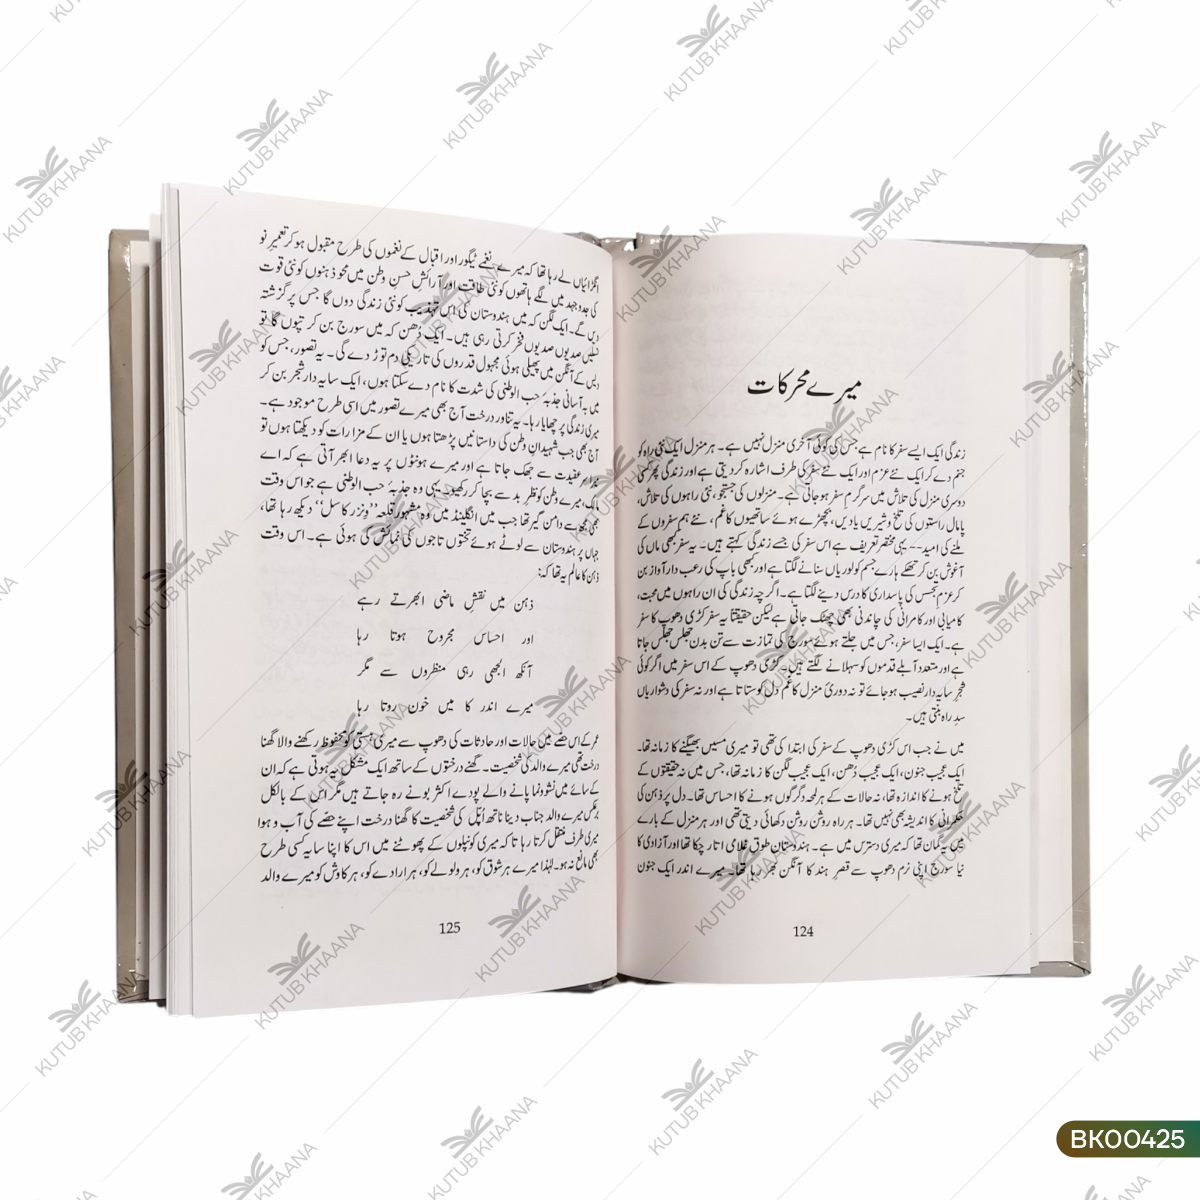 میرے محرکات
زندگی ایک ایسے سفر کا نام ہے جس کی کوئی آخری منزل نہیں ہے۔ ہر منزل ایک نئی راہ کو
جنم دے کر ایک نئے عزم اور ایک نئے سفر کی طرف اشارہ کر دیتی ہے اور زندگی پھر کسی
دوسری منزل کی تلاش میں سرگرمِ سفر ہو جاتی ہے۔ منزلوں کی جستجو، نئی راہوں کی تلاش،
پامال راستوں کی تلخ و شیریں یادیں، بچھڑے ہوئے ساتھیوں کا غم، نئے ہم سفروں کے
ملنے کی امید-- یہی مختصر تعریف ہے اس سفر کی جسے زندگی کہتے ہیں۔ یہ سفر بھی ماں کی
آغوش بن کر تھکے ہارے جسم کو لوریاں سنانے لگتا ہے اور کبھی باپ کی رعب دار آواز بن
کر عزم تجسس کی پاسداری کا درس دینے لگتا ہے۔ اگرچہ زندگی کی ان راہوں میں محبت،
کامیابی اور کامرانی کی چاندنی بھی چھٹک جاتی ہے لیکن حقیقتاً یہ سفر کڑی دھوپ کا سفر
ہے۔ ایک ایسا سفر، جس میں جلتے ہوئے سورج کی تمازت سے تن بدن جھلس جھلس جاتا
ہے اور متعدد آبلے قدموں کو سہلانے لگتے ہیں۔ کڑی دھوپ کے اس سفر میں اگر کوئی
شجرِ سایہ دار نصیب ہو جائے تو نہ دوریٔ منزل کا غم دل کو ستاتا ہے اور نہ سفر کی دشواریاں
سدِ راہ بنتی ہیں۔
میں نے جب اس کڑی دھوپ کے سفر کی ابتدا کی تھی تو میری مسیں بھیگنے کا زمانہ تھا۔
ایک عجیب جنون، ایک عجیب دُھن، ایک عجیب لگن کا زمانہ تھا، جس میں نہ حقیقتوں کے
تلخ ہونے کا اندازہ تھا، نہ حالات کے ہر لمحہ دگرگوں ہونے کا احساس تھا۔ دل پر ذہن کی
حکمرانی کا اندیشہ بھی نہیں تھا۔ ہر راہ روشن روشن دکھائی دیتی تھی اور ہر منزل کے بارے
میں یہ گمان تھا کہ میری دسترس میں ہے۔ ہندوستان طوقِ غلامی اتار چکا تھا اور آزادی کا
نیا سورج اپنی نرم دھوپ سے قصرِ ہند کا آنگن بھر رہا تھا۔ میرے اندر ایک جنون
124
انگڑائیاں لے رہا تھا کہ میرے نغمے ٹیگور اور اقبال کے نغموں کی طرح مقبول ہو کر تعمیرِ نو
کی جدوجہد میں لگے ہاتھوں کو نئی طاقت اور آرائش حسن وطن میں محو ذہنوں کو نئی قوت
دیں گے۔ ایک لگن کہ میں ہندوستان کی اس تہذیب کو نئی زندگی دوں گا جس پر گزشتہ
نسلیں صدیوں صدیوں فخر کرتی رہی ہیں۔ ایک دُھن کہ میں سورج بن کر تپوں گا تو
دیس کے آنگن میں پھیلی ہوئی مجہول قدروں کی تاریکی دم توڑ دے گی۔ یہ تصور، جس کو
میں بہ آسانی جذبۂ حب الوطنی کی شدت کا نام دے سکتا ہوں، ایک سایہ دار شجر بن کر
میری زندگی پر چھایا رہا۔ یہ تناور درخت آج بھی میرے تصور میں اسی طرح موجود ہے۔
آج بھی جب شہیدانِ وطن کی داستانیں پڑھتا ہوں یا ان کے مزارات کو دیکھتا ہوں تو
سر عقیدت سے جھک جاتا ہے اور میرے ہونٹوں پر یہ دعا ابھر آتی ہے کہ اے
مالک، میرے وطن کو نظرِ بد سے بچا کر رکھیو۔ یہی وہ جذبۂ حب الوطنی ہے جو اس وقت
بھی مجھ سے دامن گیر تھا جب میں انگلینڈ میں وہ مشہور قلعہ ”ونزر کاسل“ دیکھ رہا تھا،
جہاں پر ہندوستان سے لوٹے ہوئے تختوں تاجوں کی نمائش کی ہوئی ہے۔ اس وقت
ذہن کا عالم یہ تھا کہ:
ذہن میں نقشِ ماضی ابھرتے رہے
اور احساس مجروح ہوتا رہا
آنکھ الجھی رہی منظروں سے مگر
میرے اندر کا میں خون روتا رہا
عمر کے اس حصے میں حالات اور حادثات کی دھوپ سے میری ہستی کو محفوظ رکھنے والا گھنا
درخت تھی میرے والد کی شخصیت۔ گھنے درختوں کے ساتھ ایک مشکل یہ ہوتی ہے کہ ان
کے سائے میں نشوونما پانے والے پودے اکثر بونے رہ جاتے ہیں مگر اس کے بالکل
برعکس میرے والد جناب دینا ناتھ اُپّل کی شخصیت کا گھنا درخت اپنے حصے کی آب و ہوا
میری طرف منتقل کرتا رہا تاکہ میری کونپلوں کے پھوٹنے میں اس کا اپنا سایہ کسی طرح
بھی مانع نہ ہو۔ لہٰذا میرے ہر شوق کو، ہر ولولے کو، ہر ارادے کو، ہر کاوش کو میرے والد
125
KUTUB KHAANA
BK00425